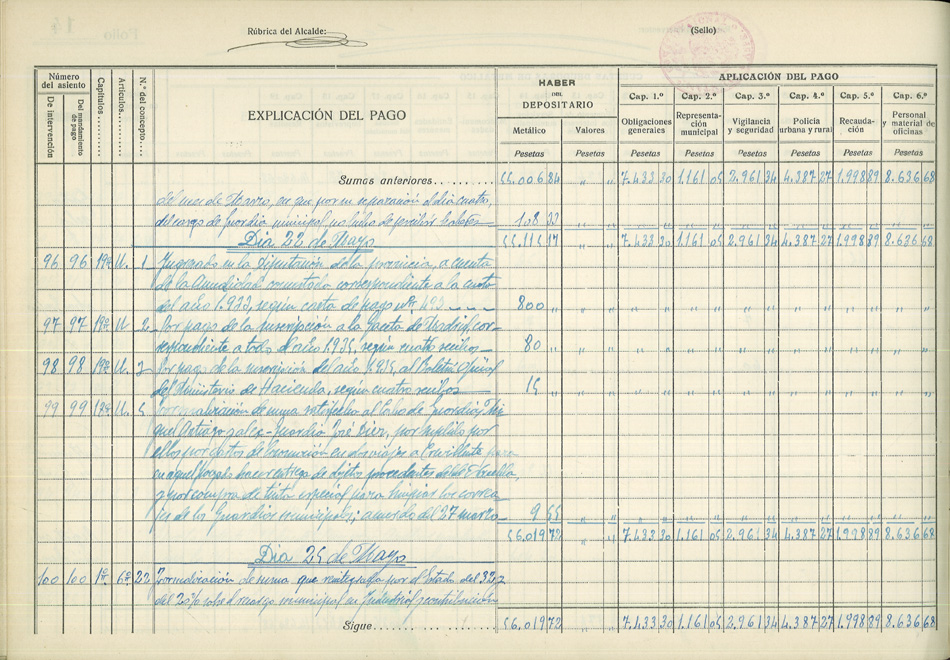 Rúbrica del Alcalde:
(Sello)
Número del asiento
De intervención
Del mandamiento de pago
Capítulos
Artículos
N.º del concepto
EXPLICACIÓN DEL PAGO
HABER DEL DEPOSITARIO
Metálico
Valores
Pesetas Pesetas
APLICACIÓN DEL PAGO
Cap. 1.º Cap. 2.ª Cap. 3.ª Cap. 4.ª Cap. 5.ª Cap. 6.ª
Obligaciones generales
Representación municipal
Vigilancia y seguridad
Policía urbana y rural
Recaudación
Personal y material de oficinas
Pesetas Pesetas Pesetas Pesetas Pesetas Pesetas
Sumas anteriores 55.006 84 " " 7.433 30 1.161 05 2.961 34 4.387 27 1.998 89 8.636 68
del mes de Marzo, en que por su separación el día cuatro,
del cargo de Guardia municipal, no hubo de percibir haberes 108 33 " "
Día 22 de Mayo 55.115 17 " " 7.433 30 1.161 05 2.961 34 4.387 27 1.998 89 8.636 68
96 96 1 Ingresado en la Diputación de la provincia, a cuenta
de la Anualidad concertada correspondiente a la cuota
del año 1.933, según carta de pago nº 800 "
97 97 2 Por pago de la suscripción a la Gaceta de Madrid, cor-
respondiente a todo el año 1.935, según cuatro recibos 80 "
98 98 3 Por pago de la suscripción del año 1.935, al Boletín Oficial
del Ministerio de Hacienda, según cuatro recibos 15 "
99 99 5 Formalización de suma satisfecha al Cabo de Guardias Mi-
guel y al ex-guardia José por
ellos por gastos de locomoción en dos viajes a Crevillente para
en aquel Juzgado hacer entrega de
y por compra de tinta especial para limpiar los correa-
jes de los Guardias municipales; acuerdo del 27 marzo 9 55 " "
56.019 72 " " 7.433 30 1.161 05 2.961 34 4.387 27 1.998 89 8.636 68
Día 25 de Mayo
100 100 1º 6º 22 Formalización de suma que reintegra por el Estado del
del 20% sobre el recargo municipal en Industrial y contribución
Sigue 56.019 72 " " 7.433 30 1.161 05 2.961 34 4.387 27 1.998 89 8.636 68